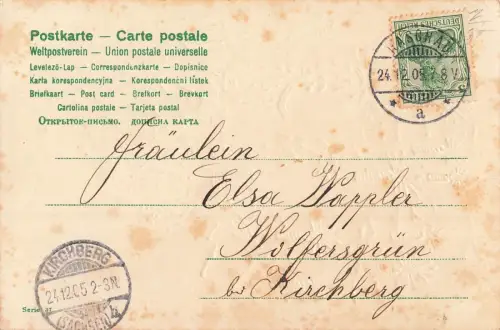 Postkarte — Carte postale
Weltpostverein — Union postale universelle
Levelező-Lap — Correspondenzkarte — Dopisnice
Karta korespondencyjna — Korespondenčni listek
Briefkaart — Post card — Brefkort — Brevkort
Cartolina postale — Tarjeta postal
Открытое-письмо. дописна карта
DEUTSCHES REICH
HASLAU
24.12.05 7-8 V.
a
Fräulein
Elsa Wappler
Wolfersgrün
bei Kirchberg
KIRCHBERG
24.12.05 2-3N
(SACHSEN)
Serie 31